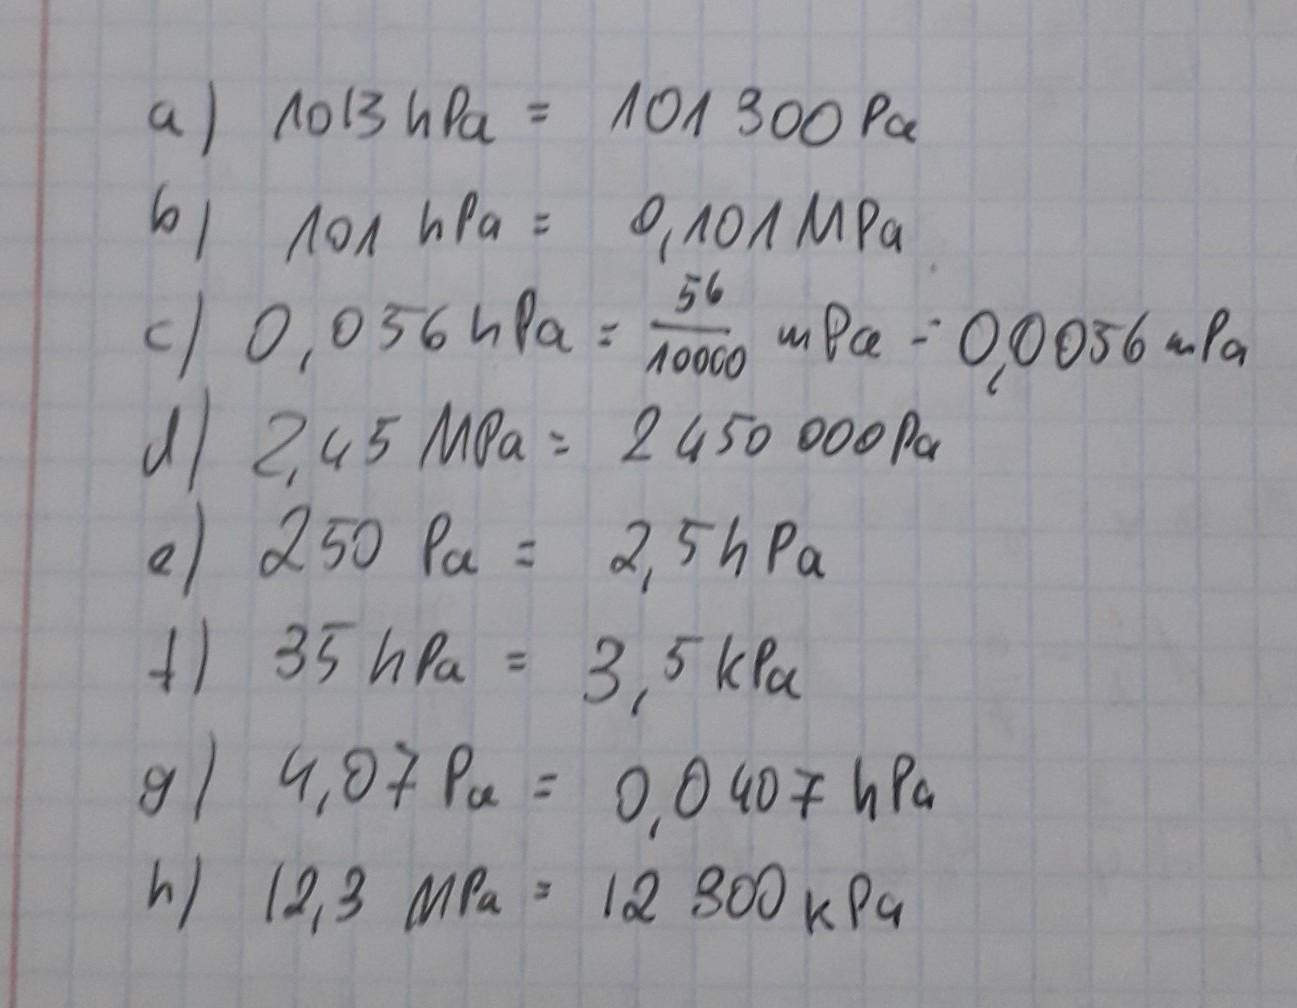 a) 1013 hPa = 101 300 Pa
b) 101 hPa = 0,101 MPa
c) 0,056 hPa = 56/10000 mPa = 0,0056 mPa
d) 2,45 MPa = 2 450 000 Pa
e) 250 Pa = 2,5 hPa
f) 35 hPa = 3,5 kPa
g) 4,07 Pa = 0,0407 hPa
h) 12,3 MPa = 12 300 kPa